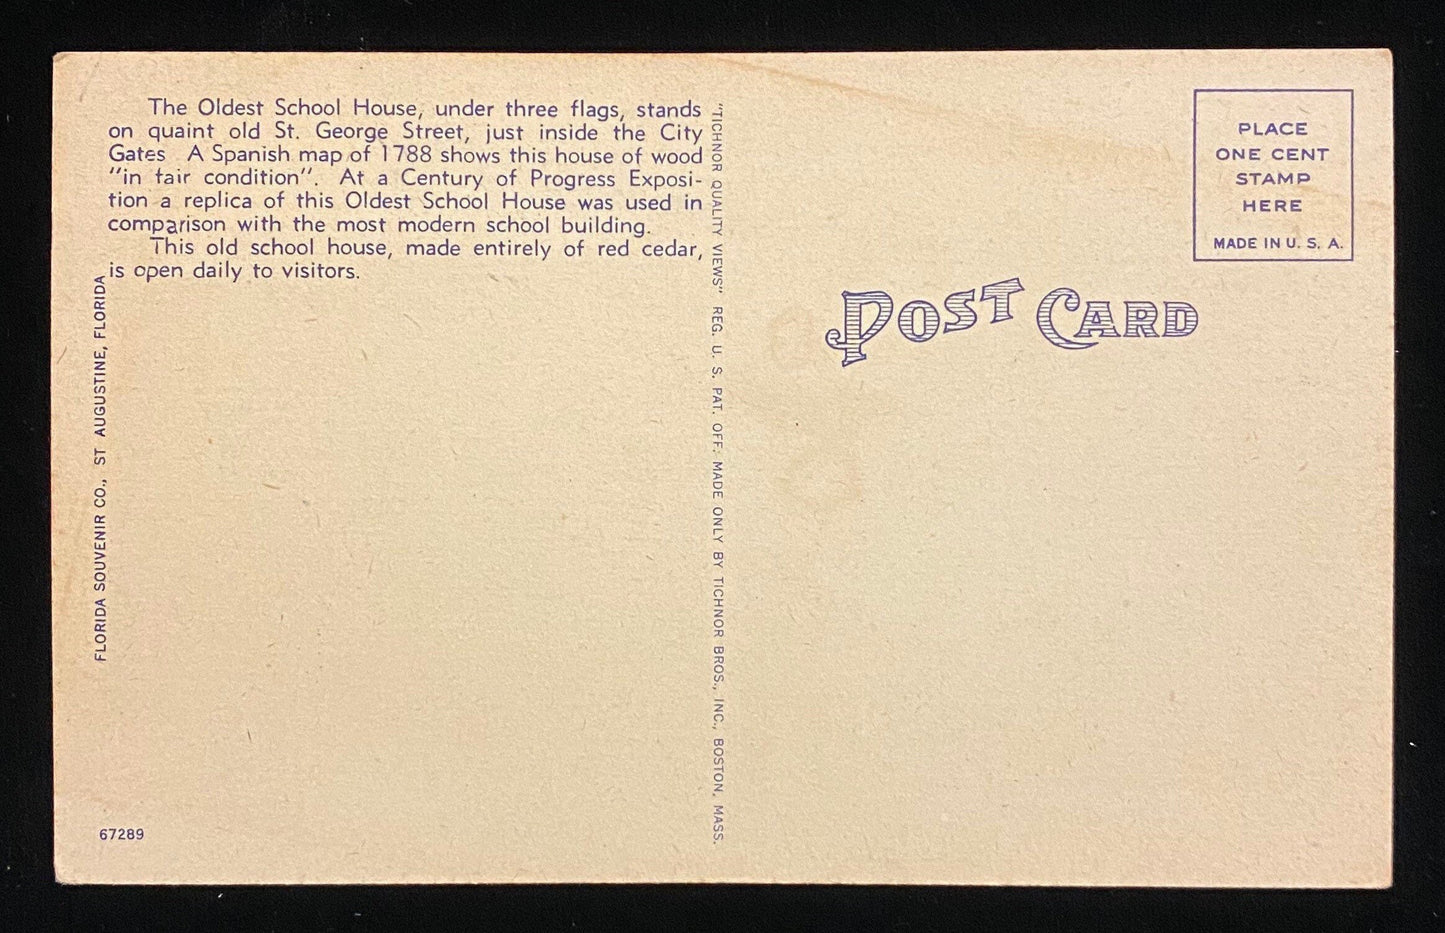 The Oldest School House, under three flags, stands
on quaint old St. George Street, just inside the City
Gates A Spanish map of 1788 shows this house of wood
"in fair condition". At a Century of Progress Exposi-
tion a replica of this Oldest School House was used in
comparison with the most modern school building.
This old school house, made entirely of red cedar,
is open daily to visitors.
FLORIDA SOUVENIR CO., ST AUGUSTINE, FLORIDA
67289
"TICHNOR QUALITY VIEWS" REG. U. S. PAT. OFF. MADE ONLY BY TICHNOR BROS., INC., BOSTON, MASS.
POST CARD
PLACE
ONE CENT
STAMP
HERE
MADE IN U. S. A.